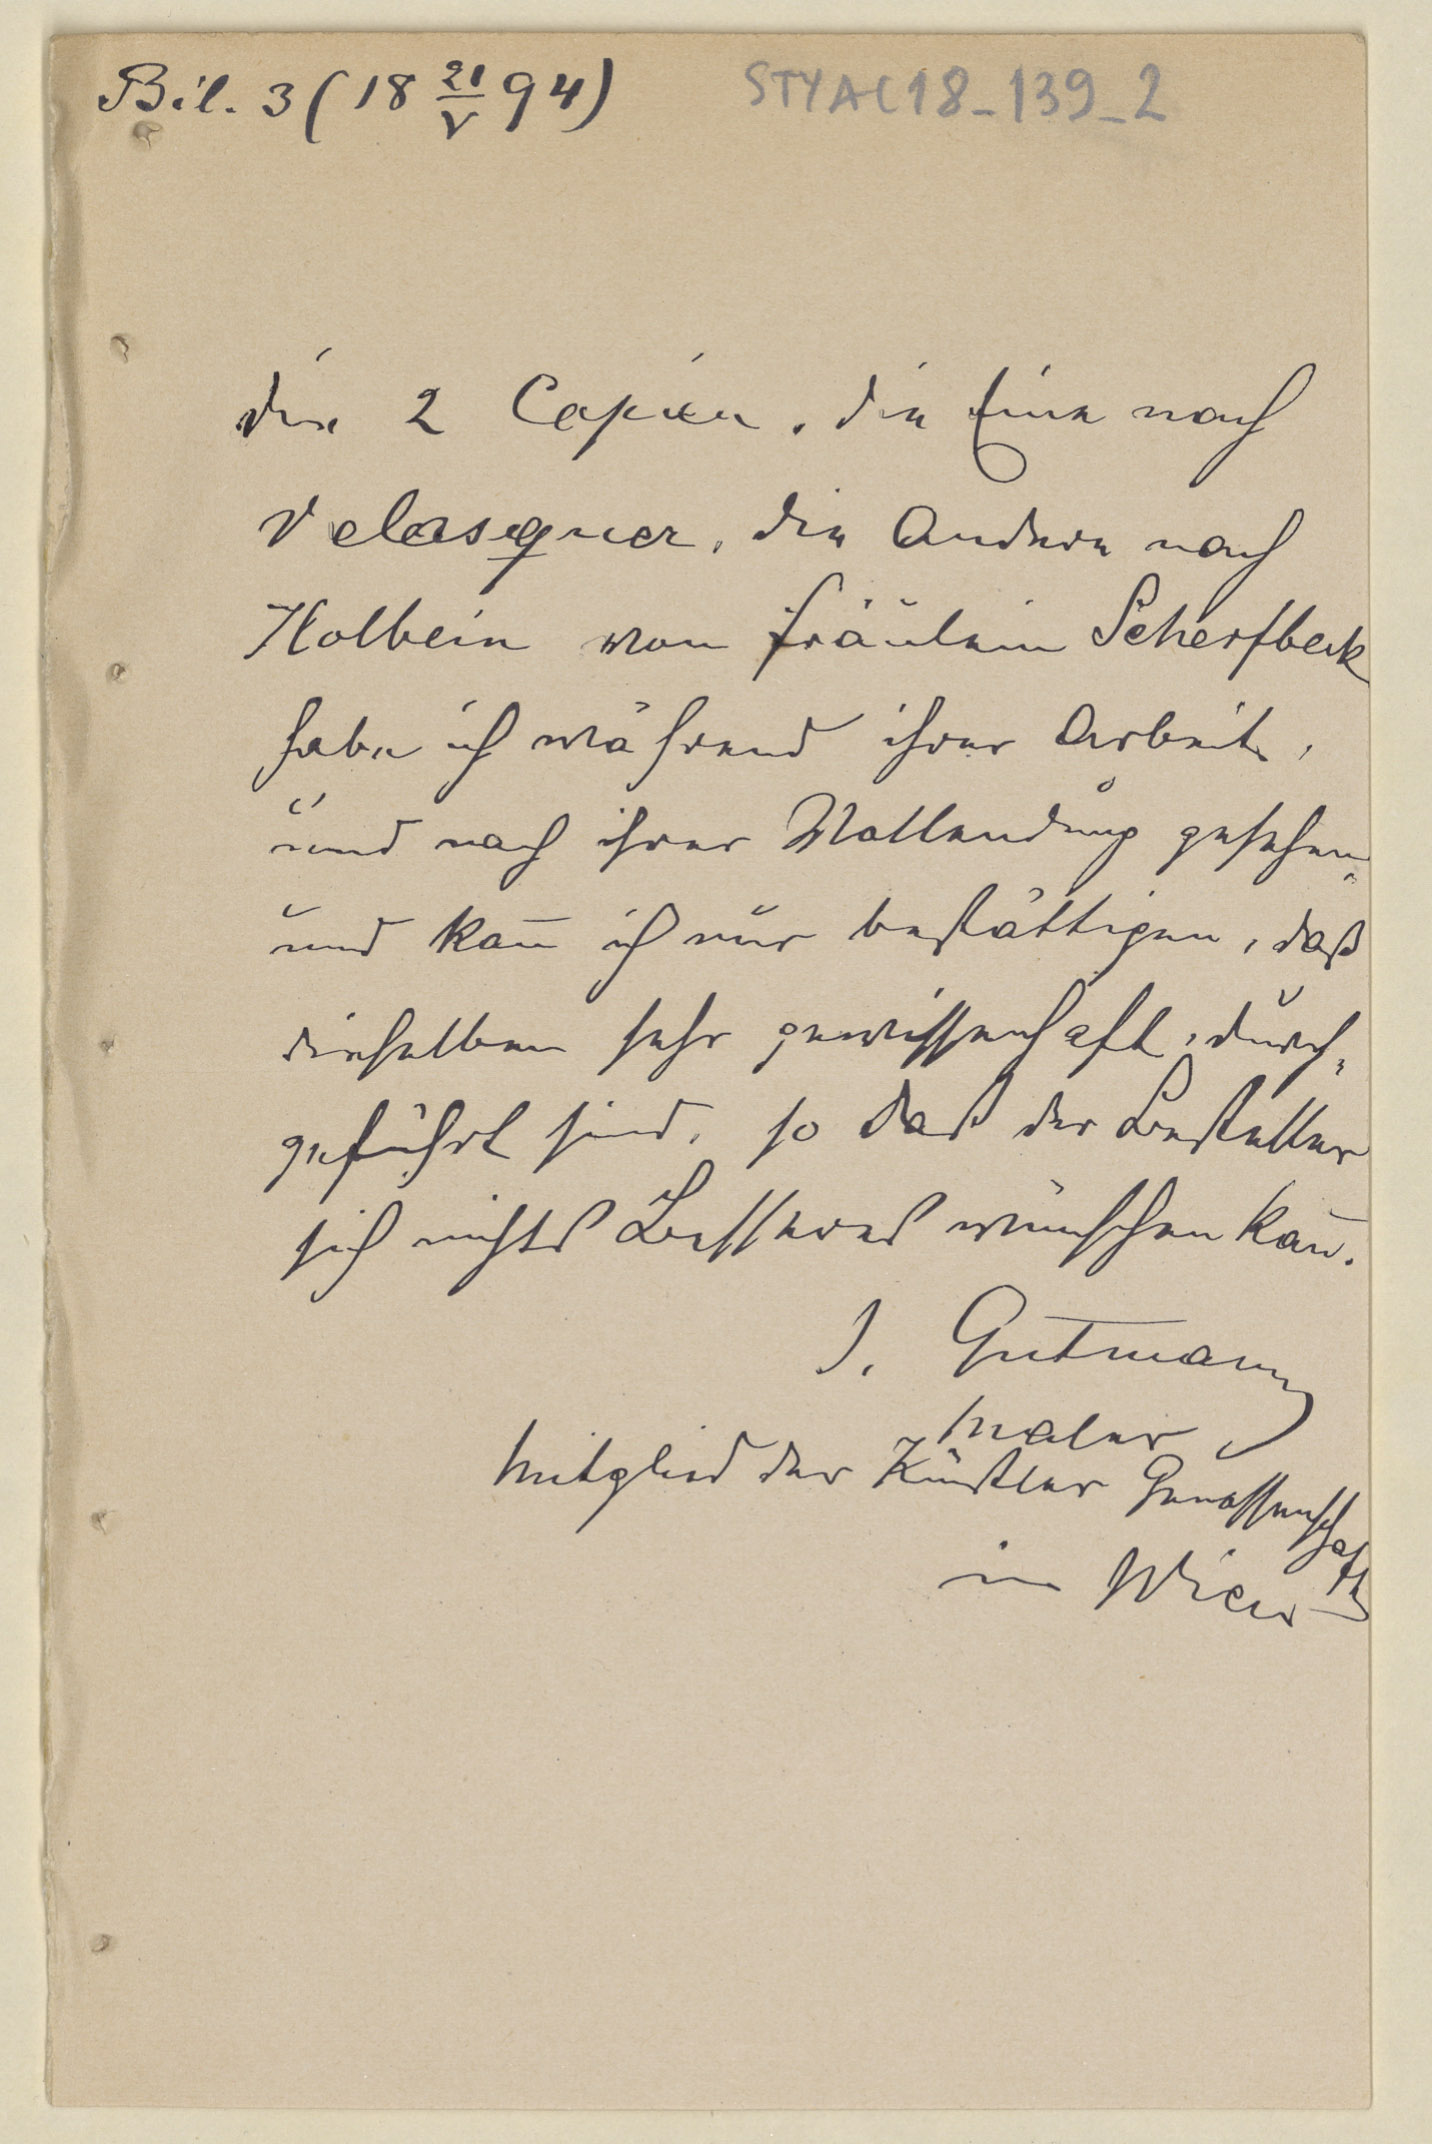 Bil. 3 (18 21/V 94)
STYAC18_139_2
die 2 Copien, die Eine nach
Velasquez, die Andere nach
Holbein von Fräulein Scherfbeck
habe ich während ihrer Arbeit,
und nach ihrer Vollendung gesehen,
und kan̄ ich nur bestättigen, daß
dieselben sehr gewissenhaft, durch-
geführt sind, so daß der Besteller
sich nichts Besseres wünschen kan̄.
I. Gutmann
Maler
Mitglied der Künstler Genossenschaft
in Wien